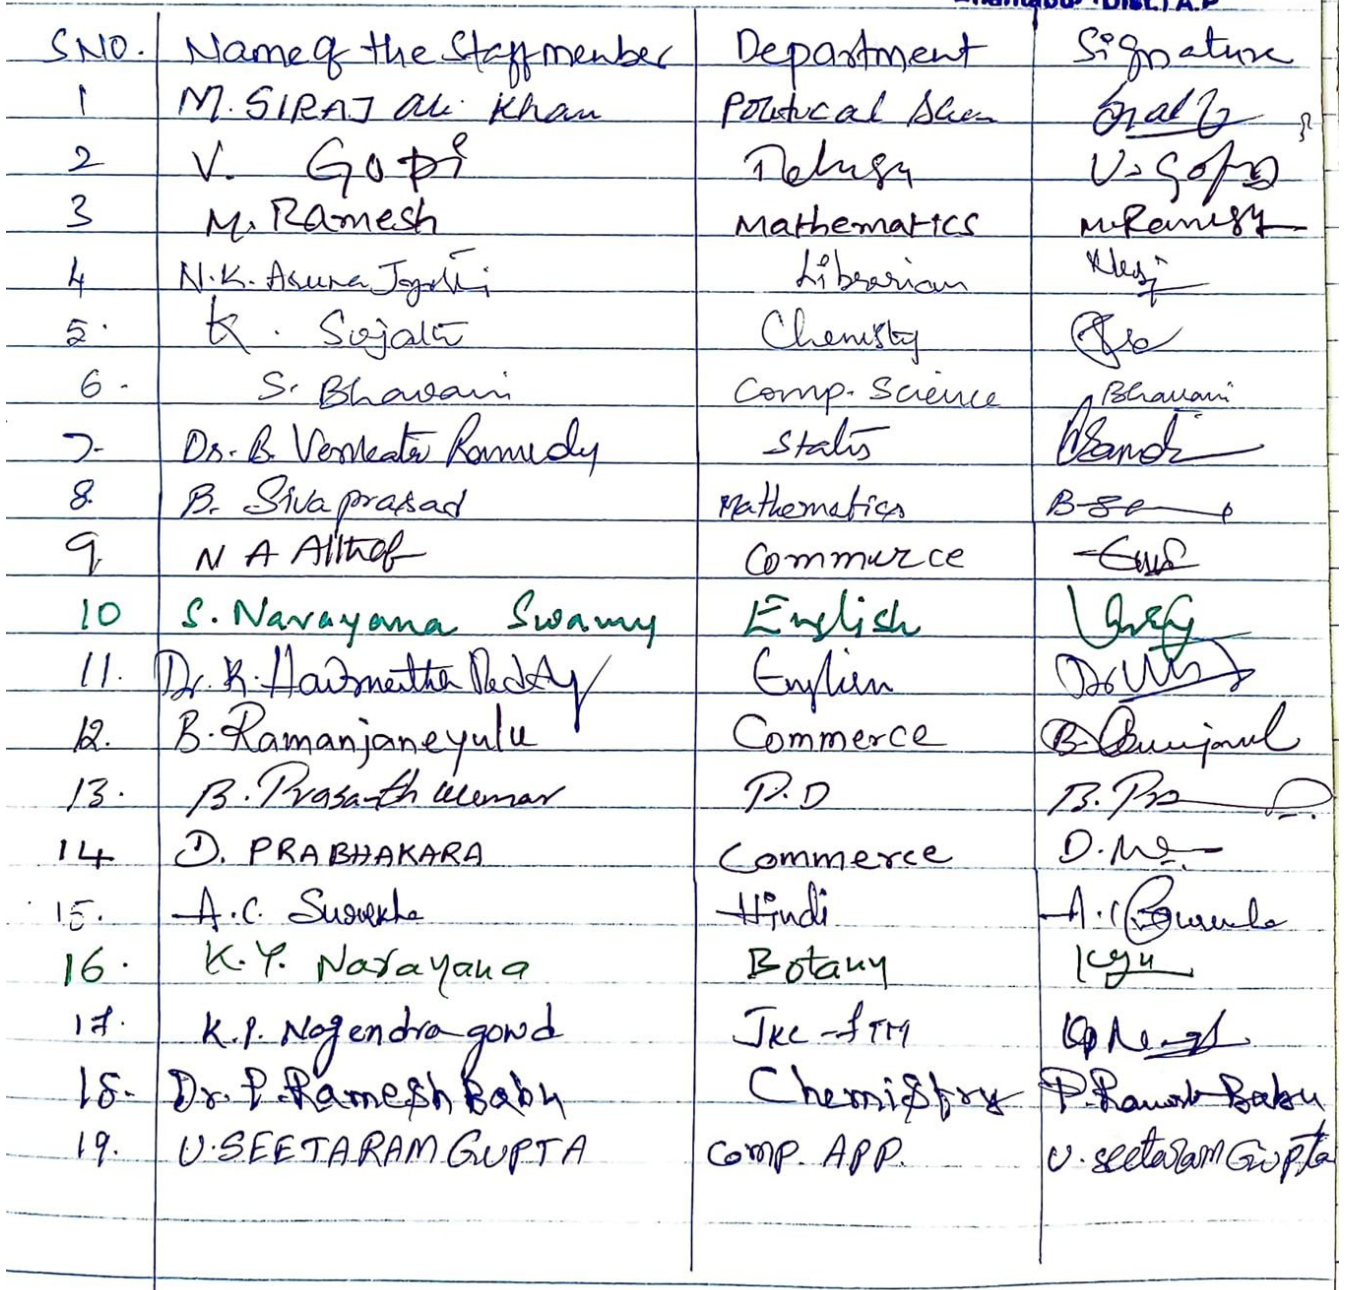 Dist.) A.P
S.NO. Name of the Staff member Department Signature
1 M. SIRAJ Ali Khan Political
2 V. Gopi Telugu V. Gopi
3 M. Ramesh Mathematics M. Ramesh
4 N.K. Aruna Jyothi Librarian
5. K. Sujata Chemistry
6. S. Bhavani Comp. Science Bhavani
7. Dr. B. Venkata Ramudu Stats
8. B. Siva prasad Mathematics
9 N A Althaf Commerce
10 S. Narayana Swamy English
11. Dr. K. Reddy English
12. B. Ramanjaneyulu Commerce
13. B. Prasanth Kumar P.D
14 D. PRABHAKARA Commerce
15. A.C. Surekha Hindi
16. K.Y. Narayana Botany
17. K.P. Nagendra gowd JKC
18. Dr. P. Ramesh Babu Chemistry P. Ramesh Babu
19. U. SEETARAM GUPTA COMP. APP. U. seetaram Gupta